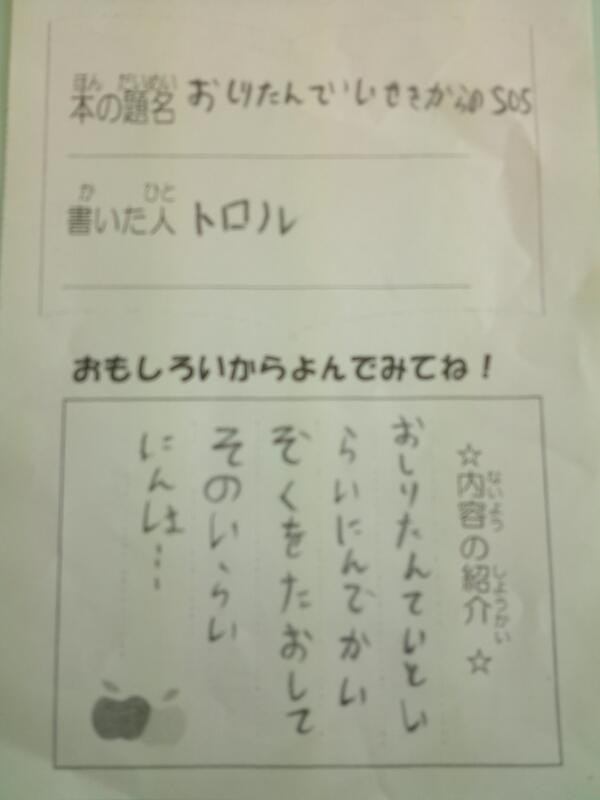 ほん だいめい
本の題名 おしりたんていいせきからのSOS
か ひと
書いた人 トロル
おもしろいからよんでみてね！
ないよう しょうかい
☆内容の紹介☆
おしりたんていとい
らいにんでかい
ぞくをたおして
そのいらい
にんは…